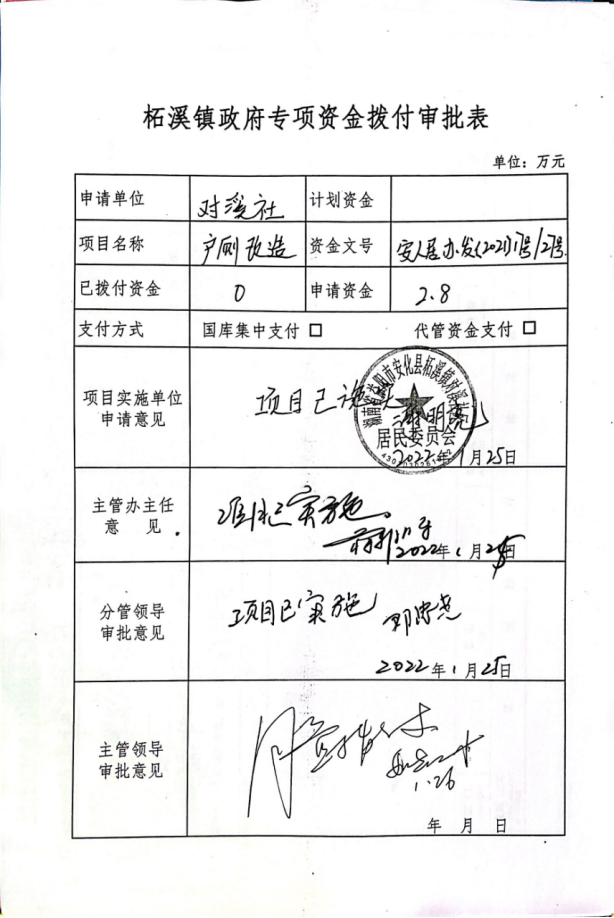 柘溪镇政府专项资金拨付审批表
单位：万元
申请单位 对溪社 计划资金
项目名称 户厕改造 资金文号 安人居办发(2021)1号/2号
已拨付资金 0 申请资金 2.8
支付方式 国库集中支付 □ 代管资金支付 □
项目实施单位
申请意见
项目已
居民委员会
2022年1月25日
主管办主任
意 见
项目已实施。
2022年1月25日
分管领导
审批意见
项目已实施
2022年1月25日
主管领导
审批意见
1.26
年 月 日